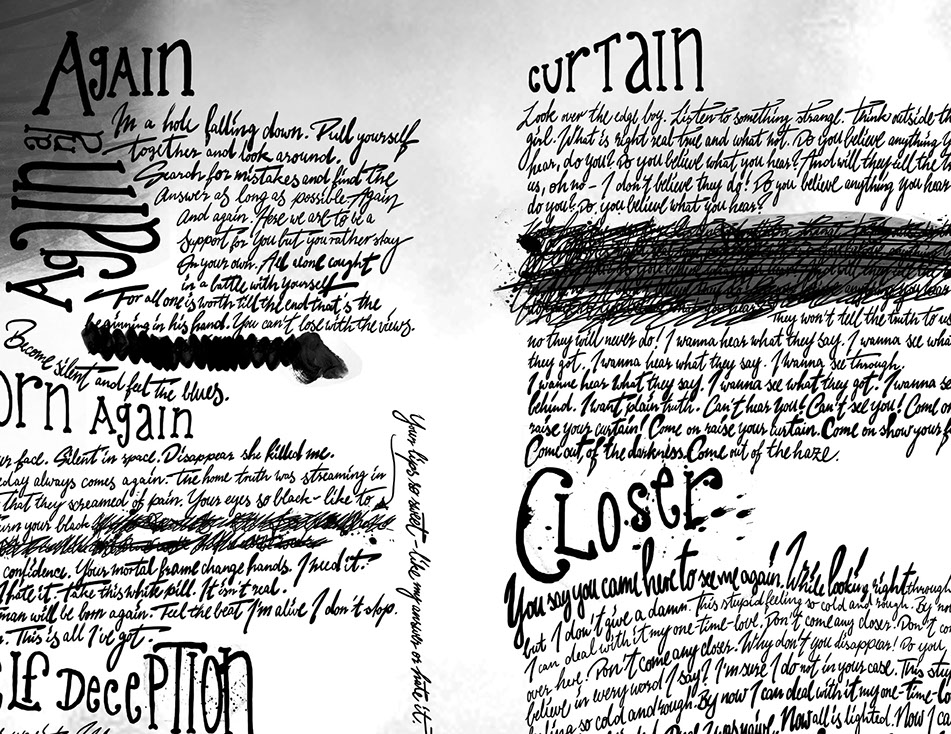 Again
Again and Again
In a hole falling down. Pull yourself
together and look around.
Search for mistakes and find the
Answer as long as possible. Again
And again. Here we are to be a
support for you but you rather stay
On your own. All alone caught
in a battle with yourself
For all one is worth till the end that's the
beginning in his hand. You can't lose with the views.
Become silent and felt the blues.
orn Again
ur face. Silent in space. Disappear she killed me.
eday always comes again. The home truth was streaming in
that they screamed of pain. Your eyes so black - like to
urn your black
confidence. Your mortal frame change hands. I need it.
I hate it. Take this white pill. It isn't real.
man will be born again. Feel the beat I'm alive I don't stop.
n. This is all I've got.
Your lips so sweet - like my answer or hate it.
elf Deception
curtain
Look over the edge boy. Listen to something strange. Think outside th
girl. What is right real true and what not. Do you believe anything y
hear, do you? Do you believe what you hear? And will they tell the t
us, oh no - I don't believe they do! Do you believe anything you hear
do you? Do you believe what you hear?
They won't tell the truth to us
no they will never do! I wanna hear what they say. I wanna see wha
they got. I wanna hear what they say. I wanna see through.
I wanne hear what they say. I wanna see what they got! I wanna se
behind. I want plain truth. Can't hear you! Can't see you! Come on
raise your curtain! Come on raise your curtain. Come on show your f
Come out of the darkness. Come out of the haze.
Closer
You say you came here to see me again. While looking right through
but I don't give a damn. This stupid feeling so cold and rough. By no
I can deal with it my one-time-love. Don't come any closer. Don't co
over here! Don't come any closer. Why don't you disappear! Do you
believe in every word I say? I'm sure I do not in your case. This stup
ling so cold and rough. By now I can deal with it my one-time-lo
Now all is lighted. Now